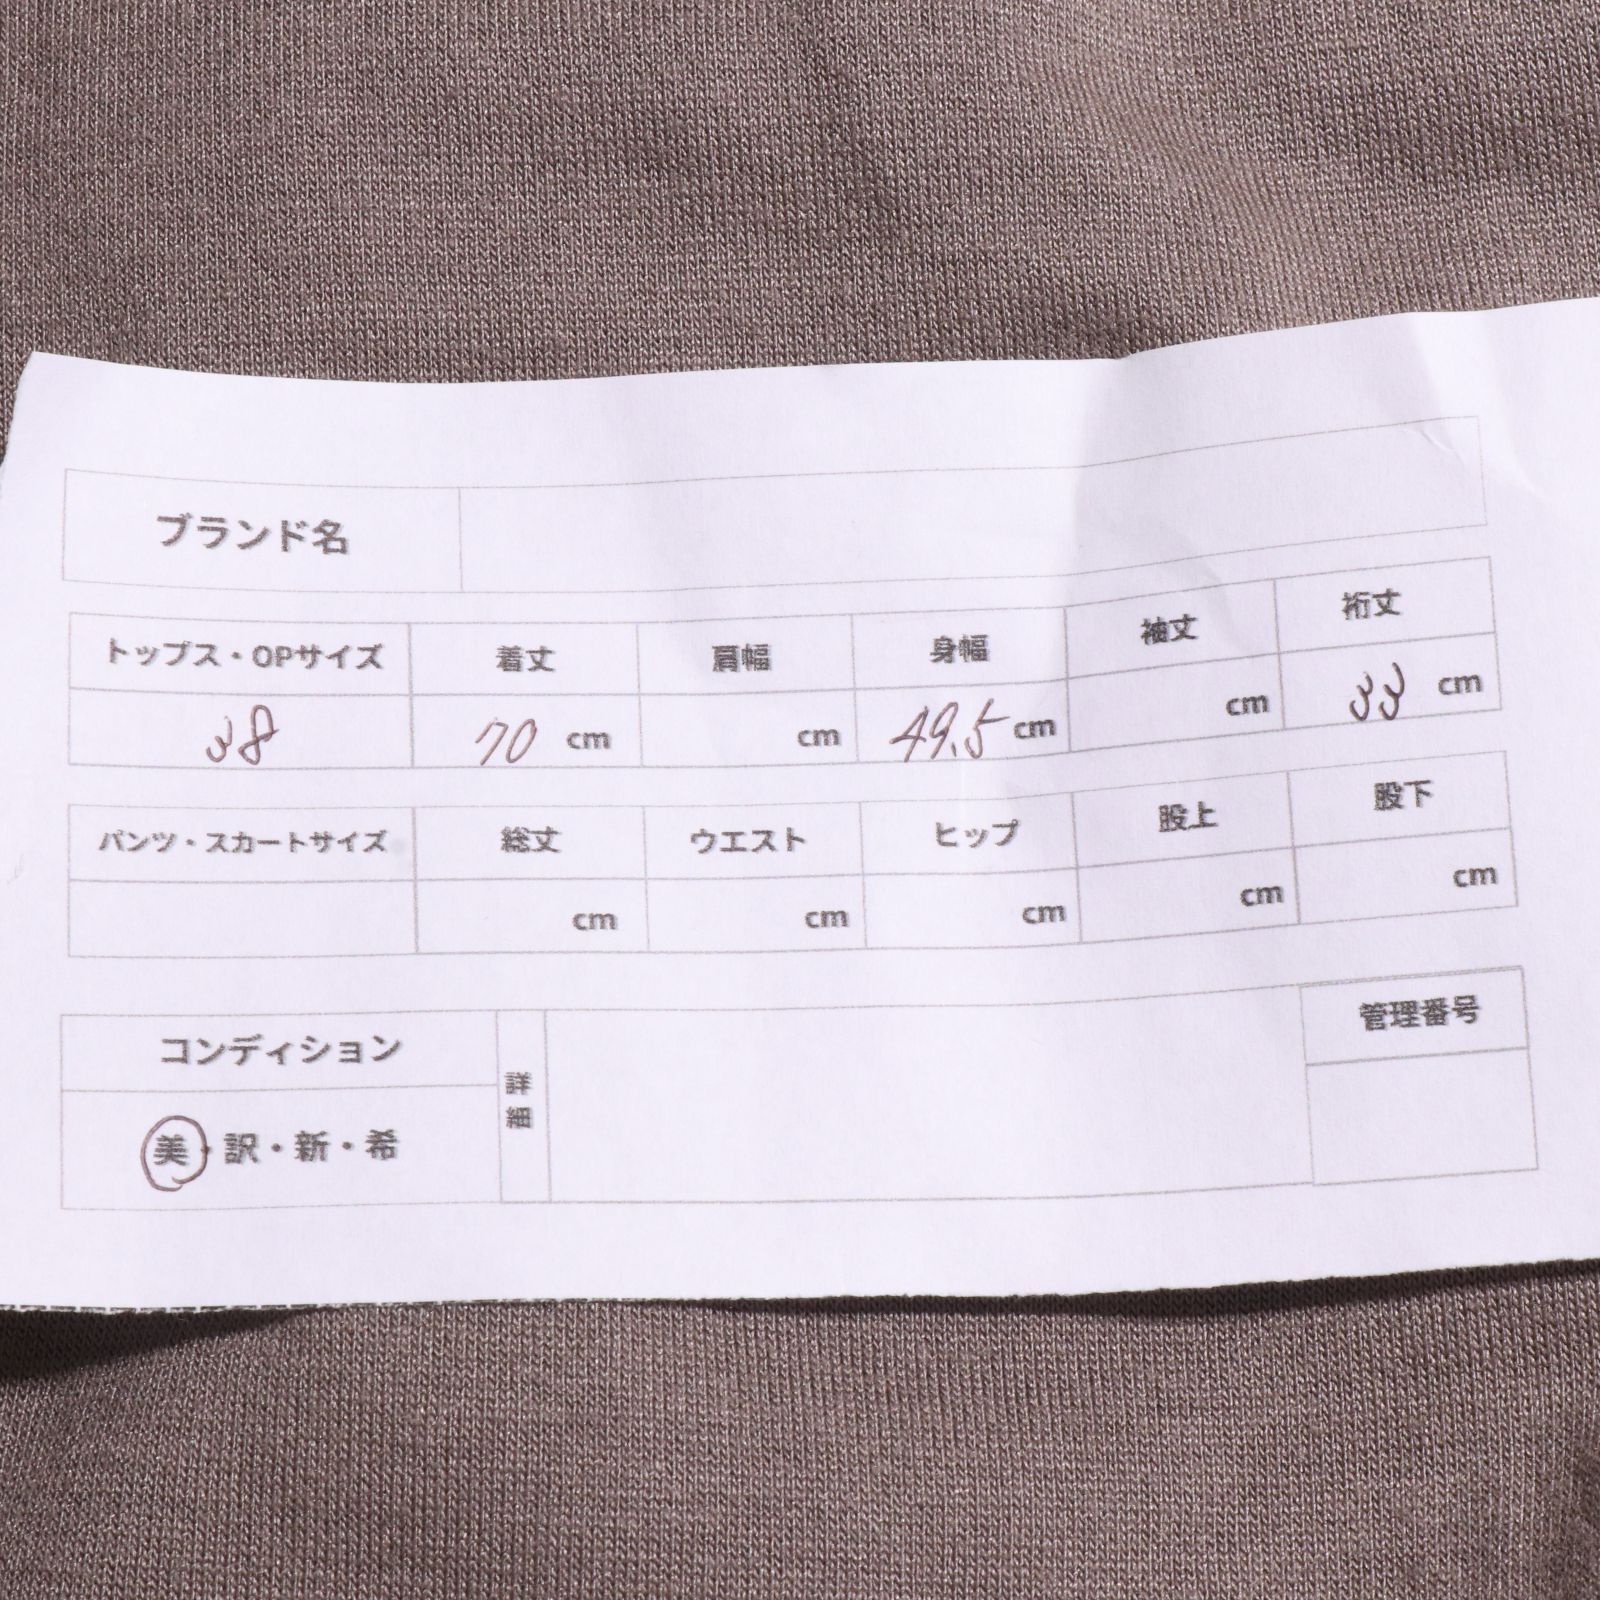 ブランド名
トップス・OPサイズ 着丈 肩幅 身幅 袖丈 裄丈
38 70 cm cm 49.5 cm cm 33 cm
パンツ・スカートサイズ 総丈 ウエスト ヒップ 股上 股下
cm cm cm cm cm
コンディション 詳細 管理番号
美・訳・新・希